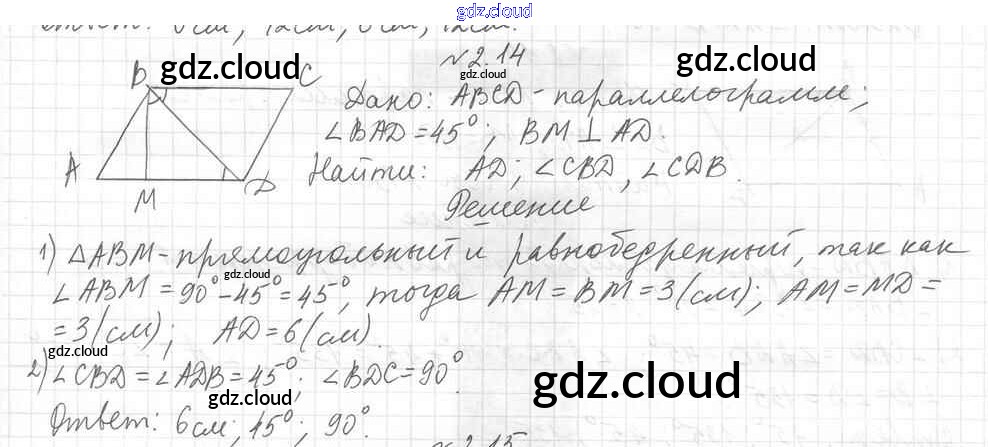 gdz.cloud
Ответ: 6 см, 12 см, 6 см, 12 см.
№2.14
gdz.cloud
gdz.cloud
gdz.cloud
B C
A M D
Дано: ABCD - параллелограмм;
∠BAD = 45°; BM ⊥ AD.
Найти: AD; ∠CBD, ∠CDB.
Решение
1) △ABM - прямоугольный и равнобедренный, так как
gdz.cloud
∠ABM = 90° - 45° = 45°, тогда AM = BM = 3 (см); AM = MD =
= 3 (см); AD = 6 (см).
gdz.cloud
2) ∠CBD = ∠ADB = 45°; ∠BDC = 90°.
gdz.cloud
gdz.cloud
Ответ: 6 см; 45°; 90°.
№2.15